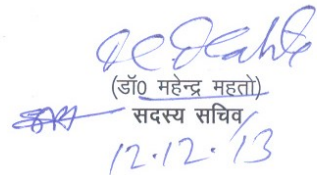 (डॉ0 महेन्द्र महतो)
सदस्य सचिव
12.12.13